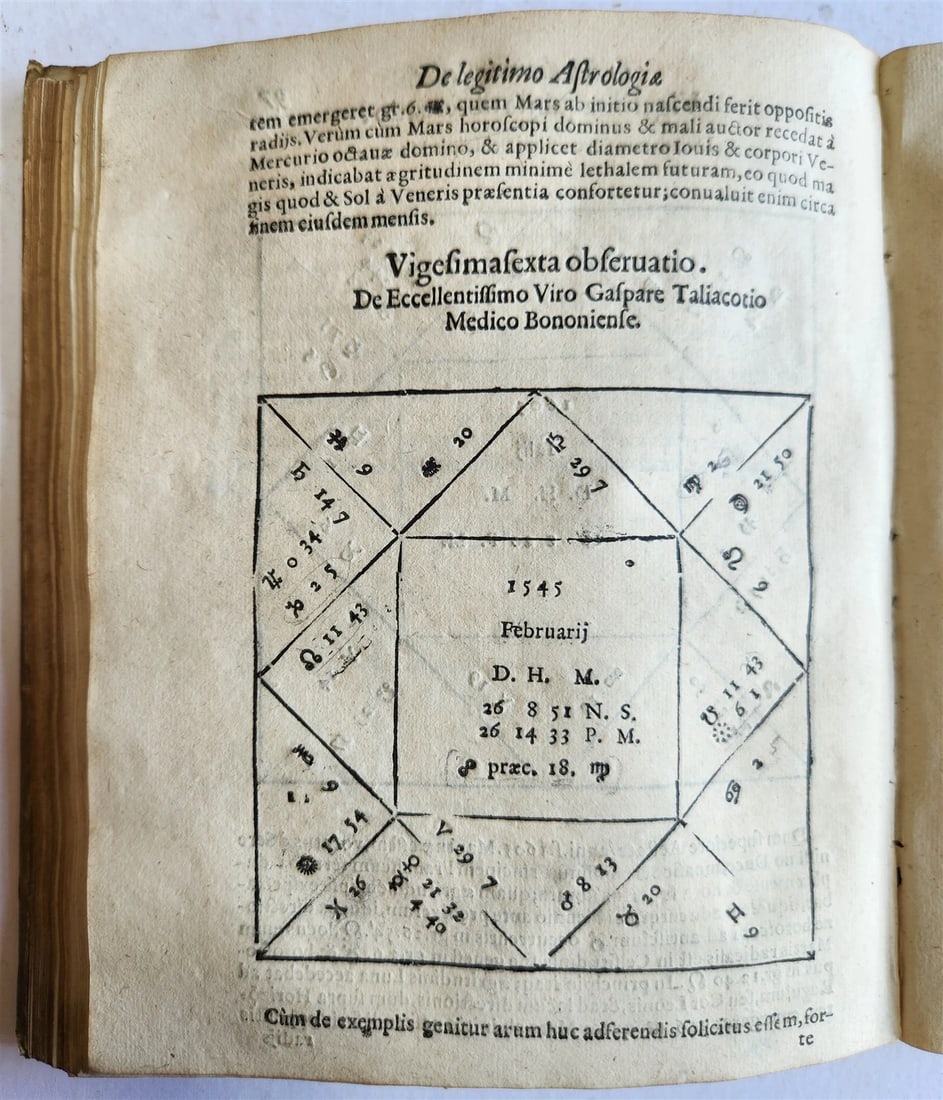 De legitimo Aſtrologiæ
tem emergeret gr. 6. ♏, quem Mars ab initio naſcendi ferit oppoſitis
radijs. Verùm cùm Mars horoſcopi dominus & mali auctor recedat à
Mercurio octauæ domino, & applicet diametro Iouis & corpori Ve-
neris, indicabat ægritudinem minimè lethalem futuram, eo quod ma
gis quod & Sol à Veneris præſentia confortetur; conualuit enim circa
finem eiuſdem menſis.
Vigeſimaſexta obſeruatio.
De Eccellentiſſimo Viro Gaſpare Taliacotio
Medico Bononienſe.
♐ 9
♏ 20
♎ 29 7
♍ 26
21 50
♌ 9
♄ 14 7
♃ 0 34
♑ 2 5
☊ 11 43
1545
Februarij
D. H. M.
26 8 51 N. S.
26 14 33 P. M.
☍ præc. 18. ♍
☋ 11 43
6 1
♋ 2 5
♒ 9
☉ 17 54
♓ 26
♈ 29 7
21 32
4 40
♂ 8 13
♉ 20
♊ 9
Cùm de exemplis genitur arum huc adferendis ſolicitus eſſem, for-
te